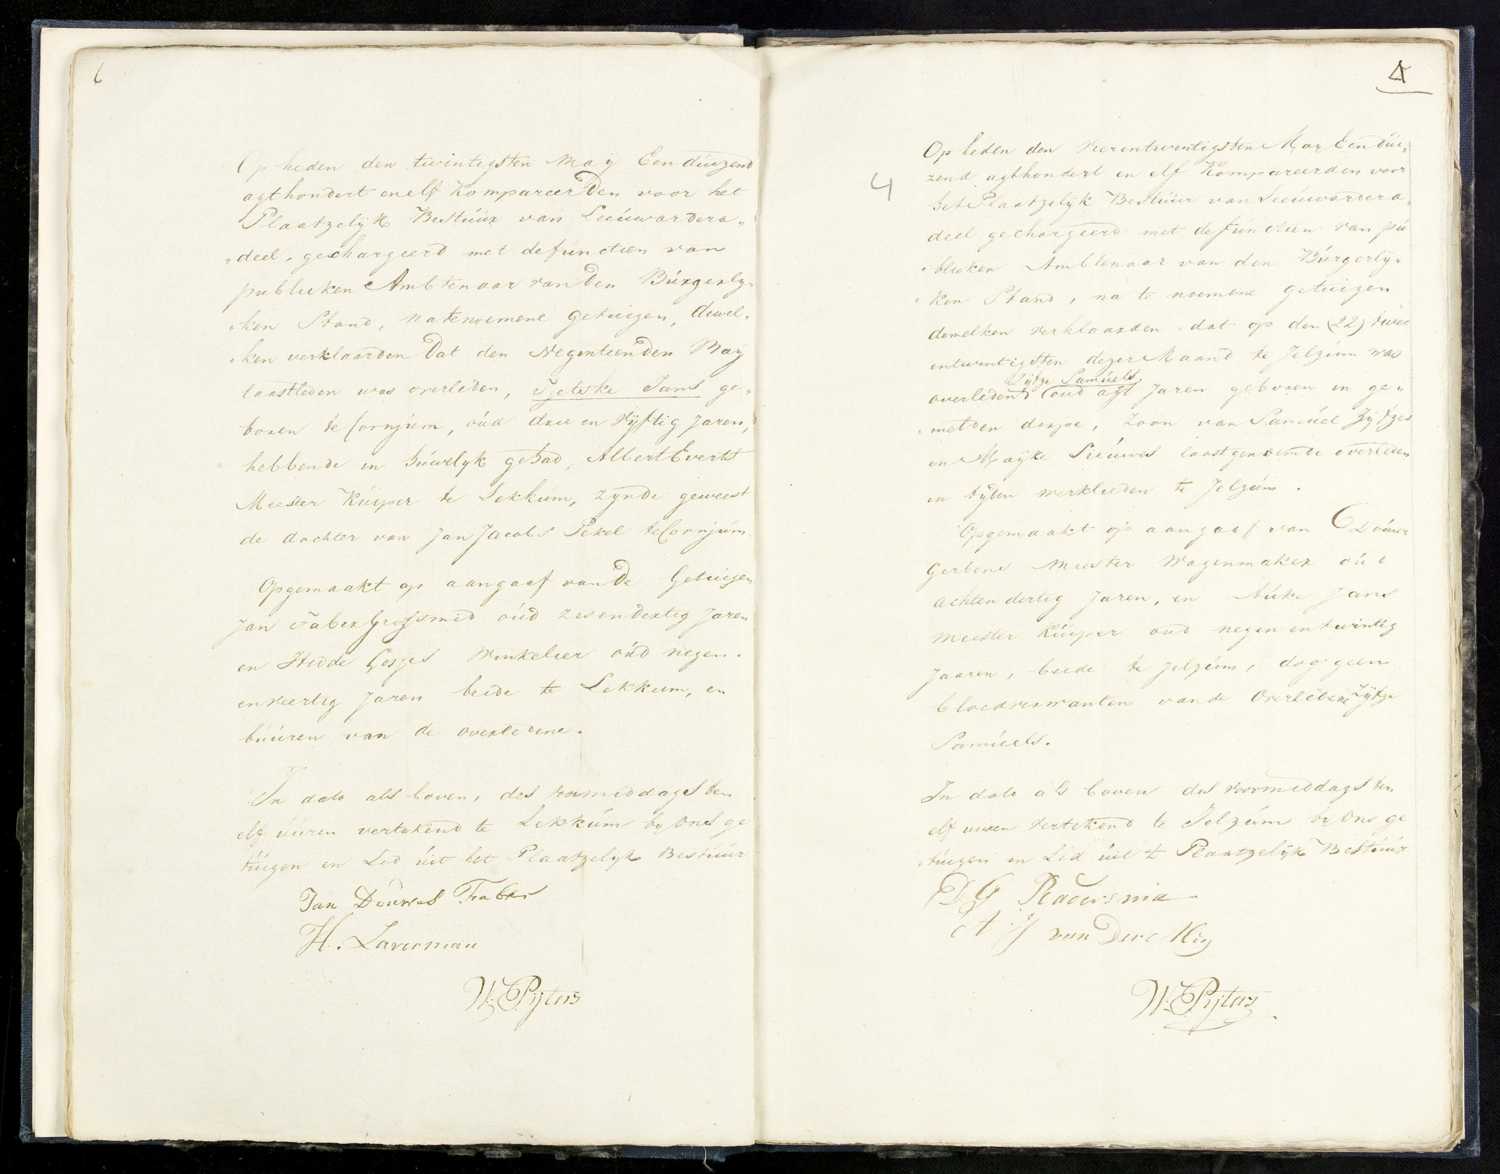 Op heden den twintigsten Maij Eenduizend
agthondert en elf Kompareerden voor het
Plaatzelijk Bestúúr van Leeúwardera-
deel, gechargeerd met de functien van
publieken Ambtenaar van den Búrgerly-
ken Stand, natenoemene getuigen, dewel-
ken verklaarden Dat den Negentienden Maij
laastleden was overleden, Tjetske Jans ge-
boren te Cornjum, oúd drie en vyftig Jaren,
hebbende in húwelyk gehad, Albert Everts
Meester Kúiper te Lekkúm, zynde geweest
de dochter van Jan Jacobs Pekel te Cornjum
Opgemaakt op aangaaf van de Getuigen
Jan Faber Grofsmid oúd zesendertig Jaren
en Hedde Gosges Winkelier oúd negen-
enveertig Jaren beide te Lekkum, en
búúren van de overledene.
In dato als boven, des voormiddags ten
elf úúren vertekend te Lekkúm by Ons ge
túigen en Lid úit het Plaatzelyk Bestúúr
Jan Douwes Faber
H. Laverman
W. Pijters
4
4
Op heden den vierentwintigsten Maij Eendúi-
zend agthondert en elf Kompareerden voor
het Plaatzelyk Bestúúr van Leeúwardera-
deel gechargeerd met de functien van pú-
blieken Ambtenaar van den Búrgerly-
ken Stand, na te noemene getuigen
dewelken verklaarden dat op den (22) twee
entwintigsten dezer Maand te Jelzúm was
Zijtze Samúels
overleden oud agt Jaren geboren en ge-
metden dorpe, Zoon van Samúel Zijtzes
en Maijke Sieúwes laastgenoemde overleden
in tyden werklieden te Jelzúm.
Opgemaakt op aangaaf van Doúwe
Gerbens Meester Wagenmaker oúd
achtendertig Jaren, en Aúke Jans
Meester Kúiper oud negenentwintig
Jaaren, beide te Jelzúm, dog geen
bloedverwanten van de Overledene Zijtze
Samúels.
In dato als boven des voormiddags ten
elf uuren vertekend te Jelzúm by Ons ge
túigen en Lid úit 't Plaatzelijk Bestúúr
D G Radersma
A J van der Meij
W. Pijters